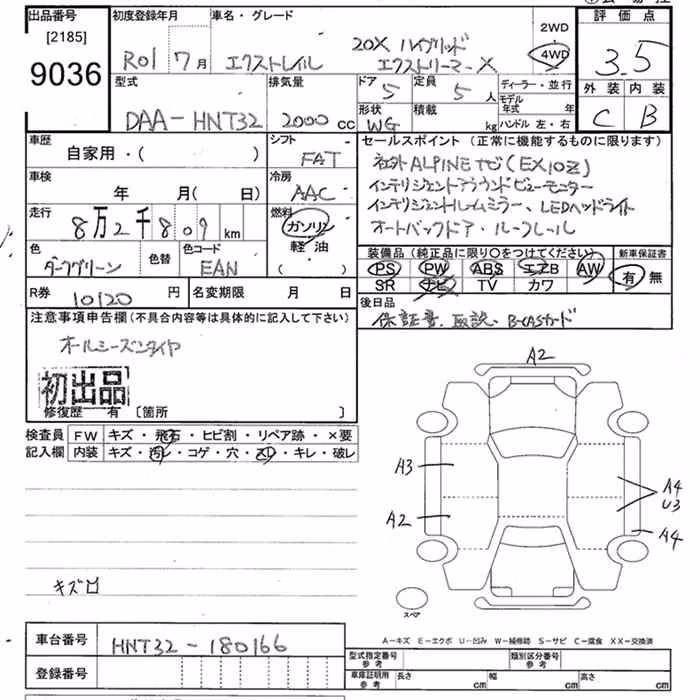 出品番号
[2185]
9036
初度登録年月
R01 7月
車名・グレード
20X ハイブリッド
エクストレイル エクストリーマーX
2WD
4WD
評価点
3.5
外装 内装
C B
型式
DAA-HNT32
排気量
2000 cc
ドア 5
定員 5 人
形状 WG
積載 kg
ディーラー・並行
モデル年式 年
ハンドル 左・右
車歴
自家用・( )
シフト
FAT
車検
年 月( 日)
冷房
AAC
走行
8万2千809km
燃料
ガソリン
軽油
( )
色
ダークグリーン
色替
色コード
EAN
R券 10120 円
名変期限 月 日
セールスポイント(正常に機能するものに限ります)
社外ALPINEナビ(EX10Z)
インテリジェントアラウンドビューモニター
インテリジェントルームミラー、LEDヘッドライト
オートバックドア・ルーフレール
装備品(純正品に限り○をつけてください)
新車保証書
PS PW ABS エアB AW
有 無
SR ナビ TV カワ
後日品
保証書、取説、B-CASカード
注意事項申告欄(不具合内容等は具体的に記入して下さい)
オールシーズンタイヤ
初出品
修復歴 有 〔箇所 〕
検査員 FW キズ・飛石・ヒビ割・リペア跡・×要
記入欄 内装 キズ・汚レ・コゲ・穴・スレ・キレ・破レ
A2
A3
A2
A4
U3
A4
スペア
キズ ロ
A―キズ E―エクボ U―凹み W―補修跡 S―サビ C―腐食 XX―交換済
車台番号 HNT32-180166
登録番号
型式指定番号 参考
類別区分番号 参考
車庫証明用 参考
長さ cm
幅 cm
高さ cm